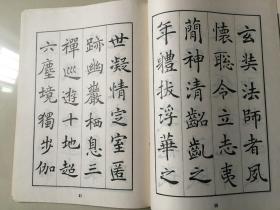 玄奘法師者夙
懷聦令立志夷
蕳神清齠齔之
年體拔浮華之
世凝情定室匿
跡幽巖栖息三
禪巡遊十地超
六塵境獨步伽